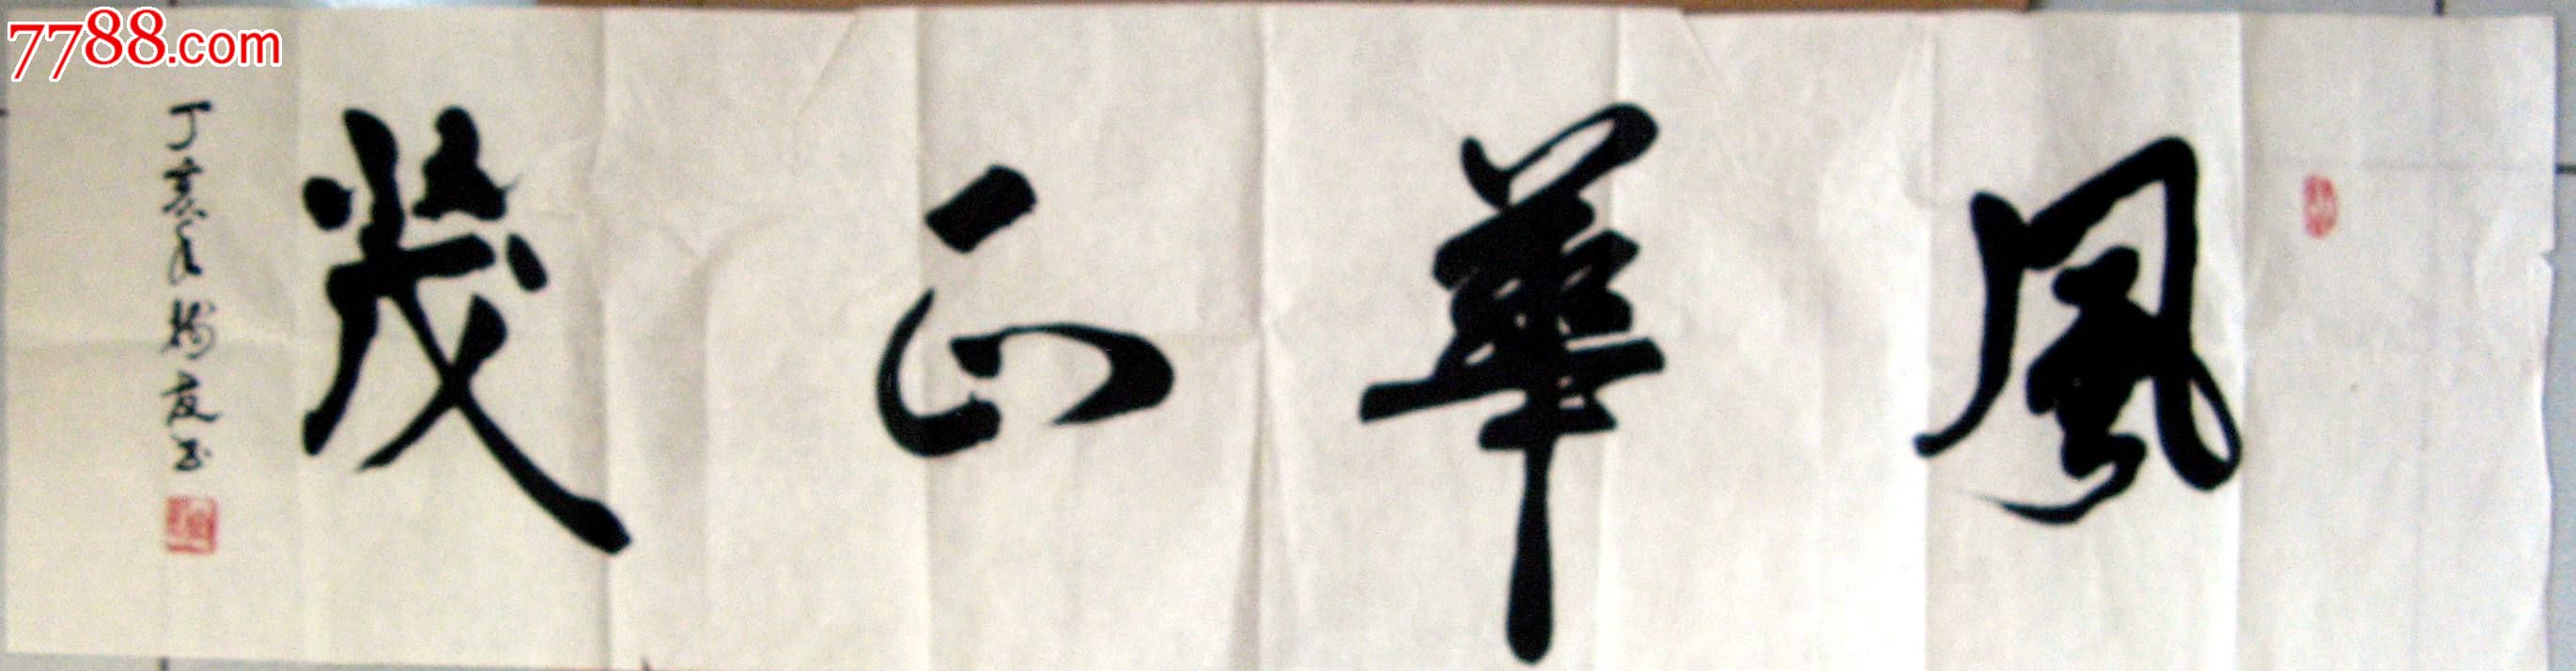 7788.com
風華正茂
丁亥年楊友书